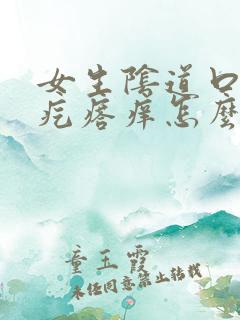 女生陰道口
疙瘩痒怎麼
童玉霞
未经同意禁止转载